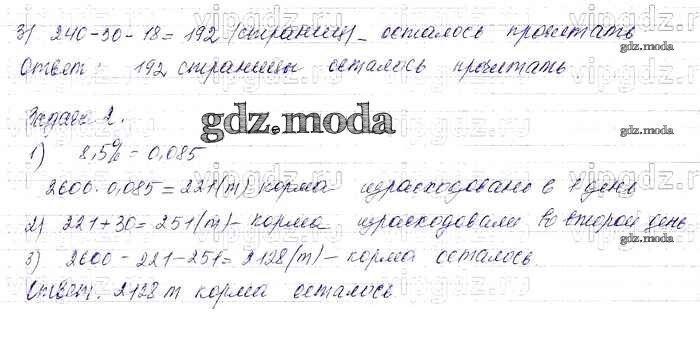 3) 240-30-18=192 (страниц) - осталось прочитать
Ответ: 192 страницы осталось прочитать
gdz.moda
Задача 2.
gdz.moda
1) 8,5% = 0,085
gdz.moda
2600·0,085=221(т) корма израсходовано в 1 день
2) 221+30=251(т) - корма израсходовали во второй день
gdz.moda
3) 2600-221-251=2128(т) - корма осталось
Ответ: 2128 т корма осталось